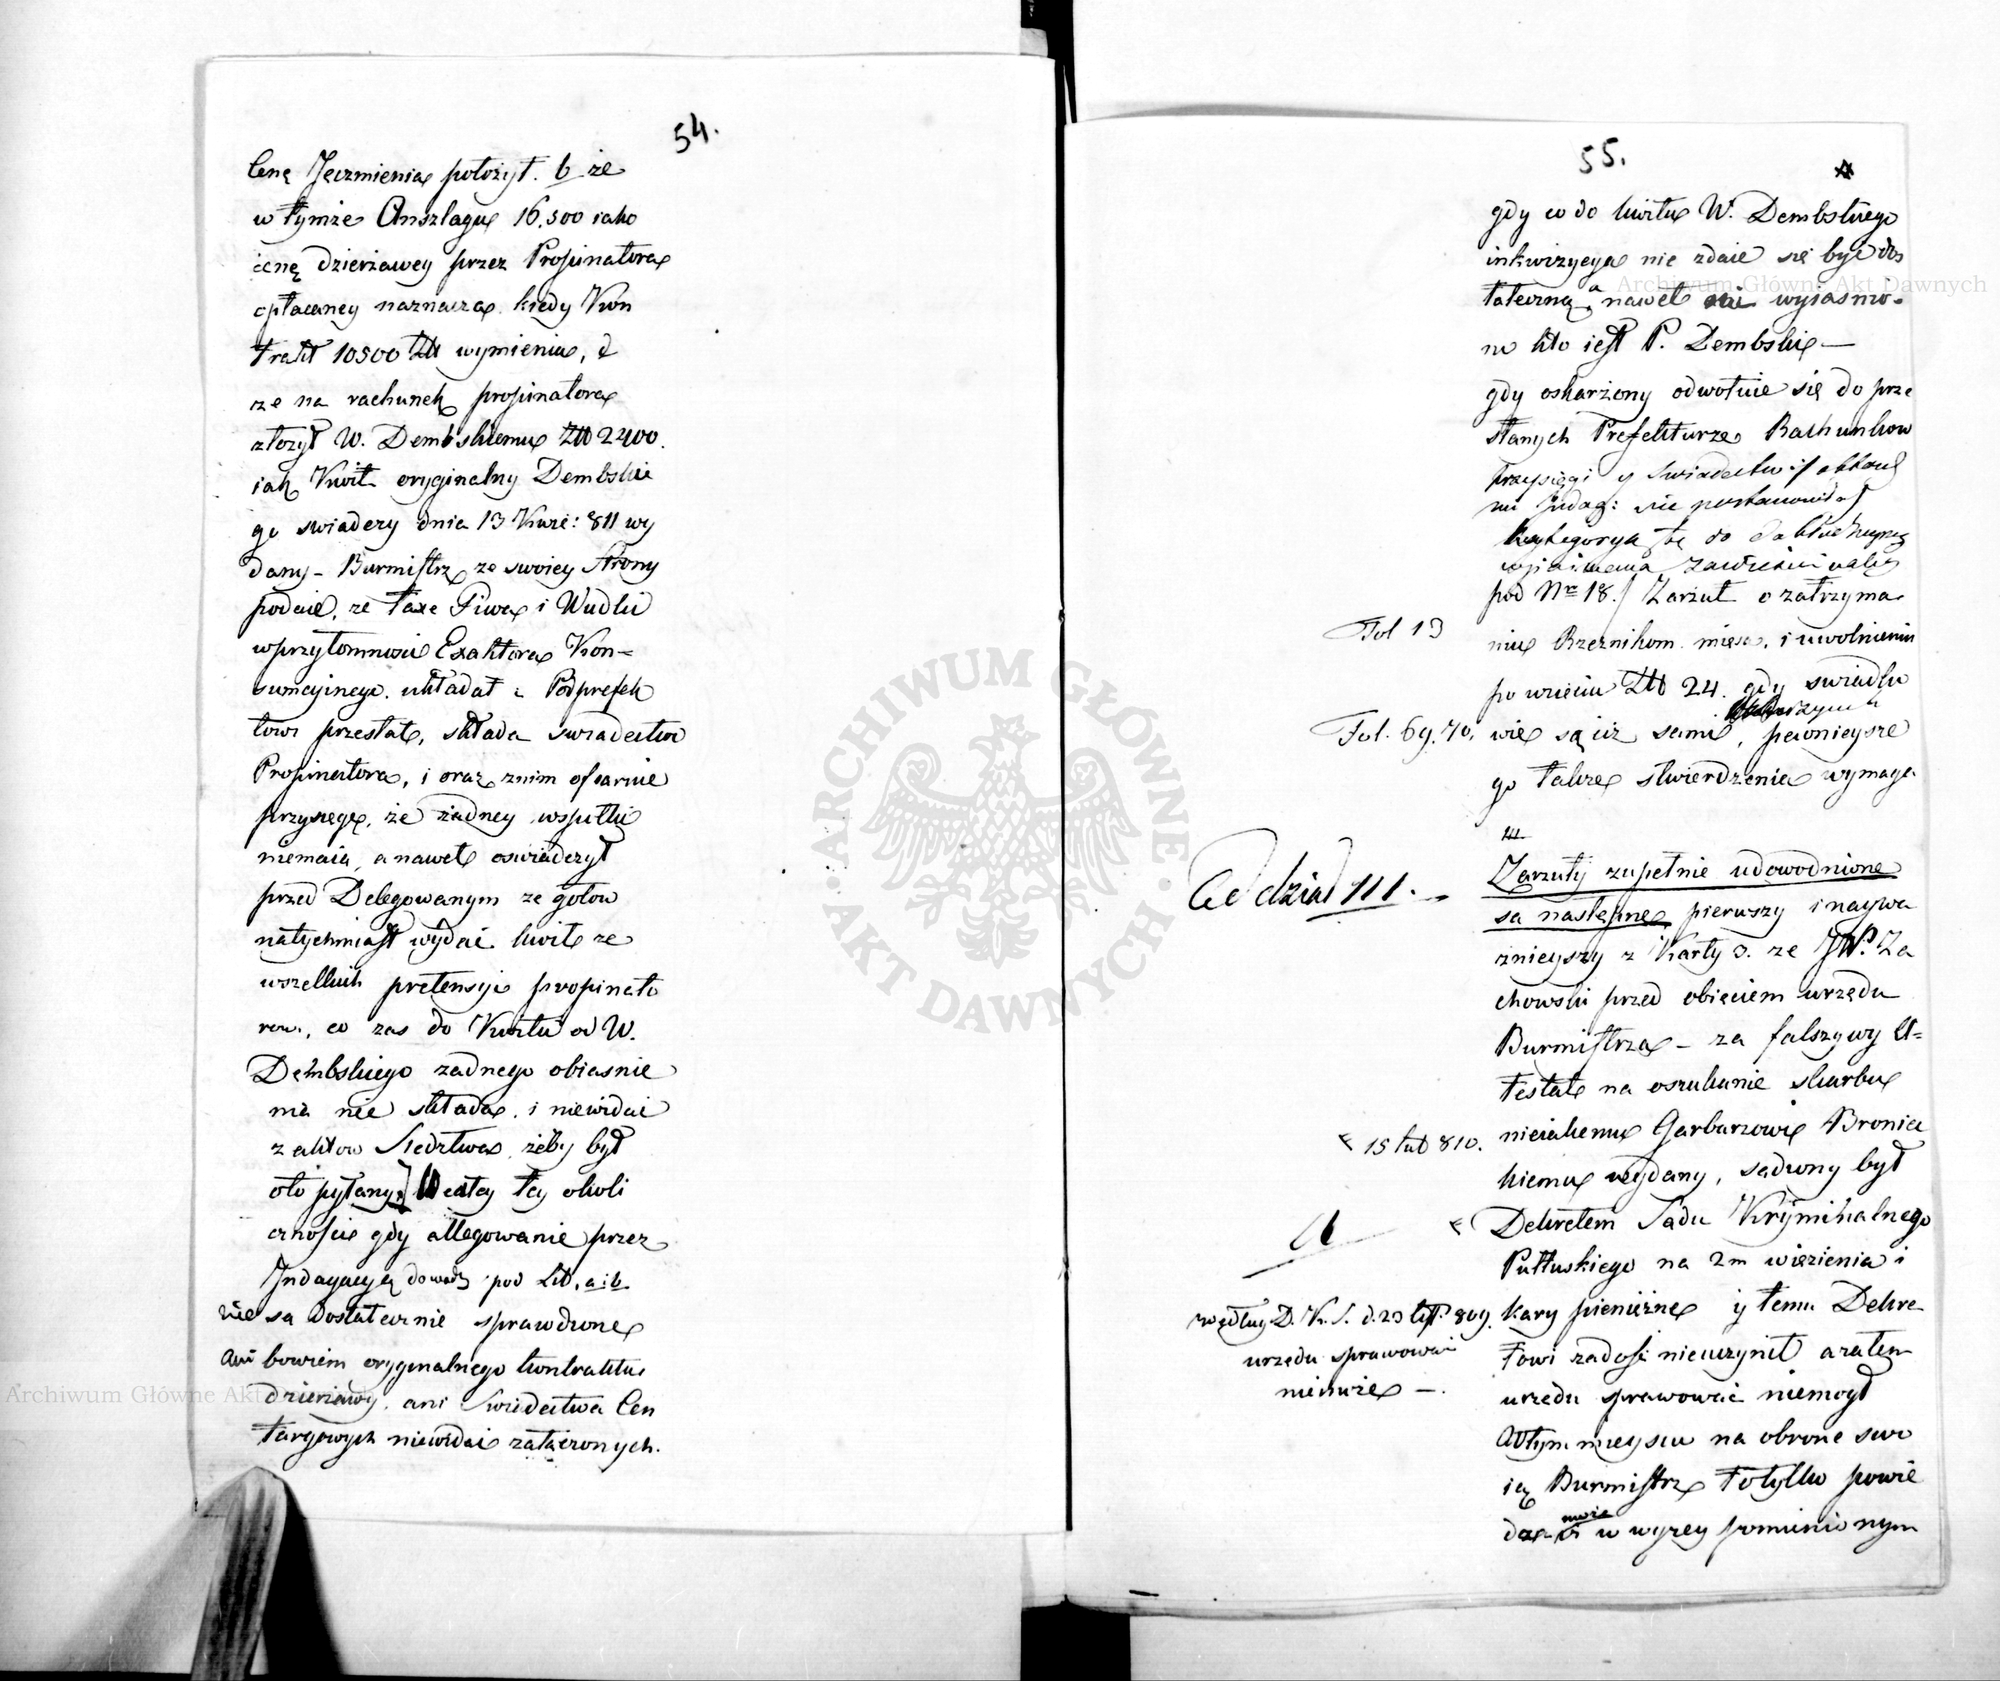 54.
Cenę Jęczmienia położył. b że
w tymże Anszlagu 16,500 iako
cenę dzierżawey przez Propinatora
opłacaney naznacza kiedy Kon
trakt 10500 Złł wymienia, d
że na rachunek propinatora
złożył W. Dembskiemu Złł 2400.
iak Kwit oryginalny Dembskie
go swiadczy dnia 13 Kwie: 811 wy
dany – Burmistrz ze swoiey strony
podaie, że taxe Piwa i Wudki
wprzytomnosci Exaktora Kon-
sumcyinego układał i Podprefek
towi przesłał, składa swiadectwo
Propinatora, i oraz znim ofiaruie
przysięgę, że żadney wspułki
niemaią, a nawet oswiadczył
przed Delegowanym że gotow
natychmiast wydać kwit ze
wszelkich pretensyi propinato
rowi, co zas do Kwitu od W.
Dembskiego żadnego obiasnie
nia nie składa, i niewidać
z aktow Sledztwa, żeby był
oto pytany. W całey tey okoli
cznosci gdy allegowanie przez
Indagacyą dowody pod Lit. a: b.
nie są dostatecznie sprawdzone
ani bowiem oryginalnego kontraktu
dzierżawy, ani Swiadectwa Cen
targowych niewidać załączonych.
55.
gdy co do kwitu W. Dembskiego
inkwizycya nie zdaie się być dos
tateczną, a nawet nie wyiasnio-
no kto iest P. Dembski —
gdy oskarżony odwołuie się do prze
słanych Prefekturze Rachunkow
przysięgi y Swiadectw
nie
Kategorya ta do
wyiasnienia
pod Nro 18. / Zarzut o zatrzyma
Fol 13
niu Rzeznikom mięsa, i uwolnieniu
po wzięciu Złł 24. gdy swiadko
Fol. 69, 70.
wie są iuż sami, pewnieysze
go także stwierdzenia wymaga
III.
Ad dział III. —
Zarzuty zupełnie udowodnione
są następne pierwszy i naywa
żnieyszy z Karty 3. że JW. Za
chowski przed obięciem urzędu
Burmistrza – za falszywy At-
testat na oszukanie skarbu
15 lut 810.
nieiakiemu Garbarzowi Bronic
kiemu wydany, sądzony był
Dekretem Sądu Kryminalnego
Pułtuskiego na 2m więzienia i
według D. K. S. d. 23 list. 809.
urzędu sprawować
niemoże —.
kary pieniężne y temu Dekre
towi zadosć nieuczynił a zatem
urzędu sprawować niemogł
Wtym mieyscu na obronę swo
ią Burmistrz to tylko powie
może
w wyżey pomienionym